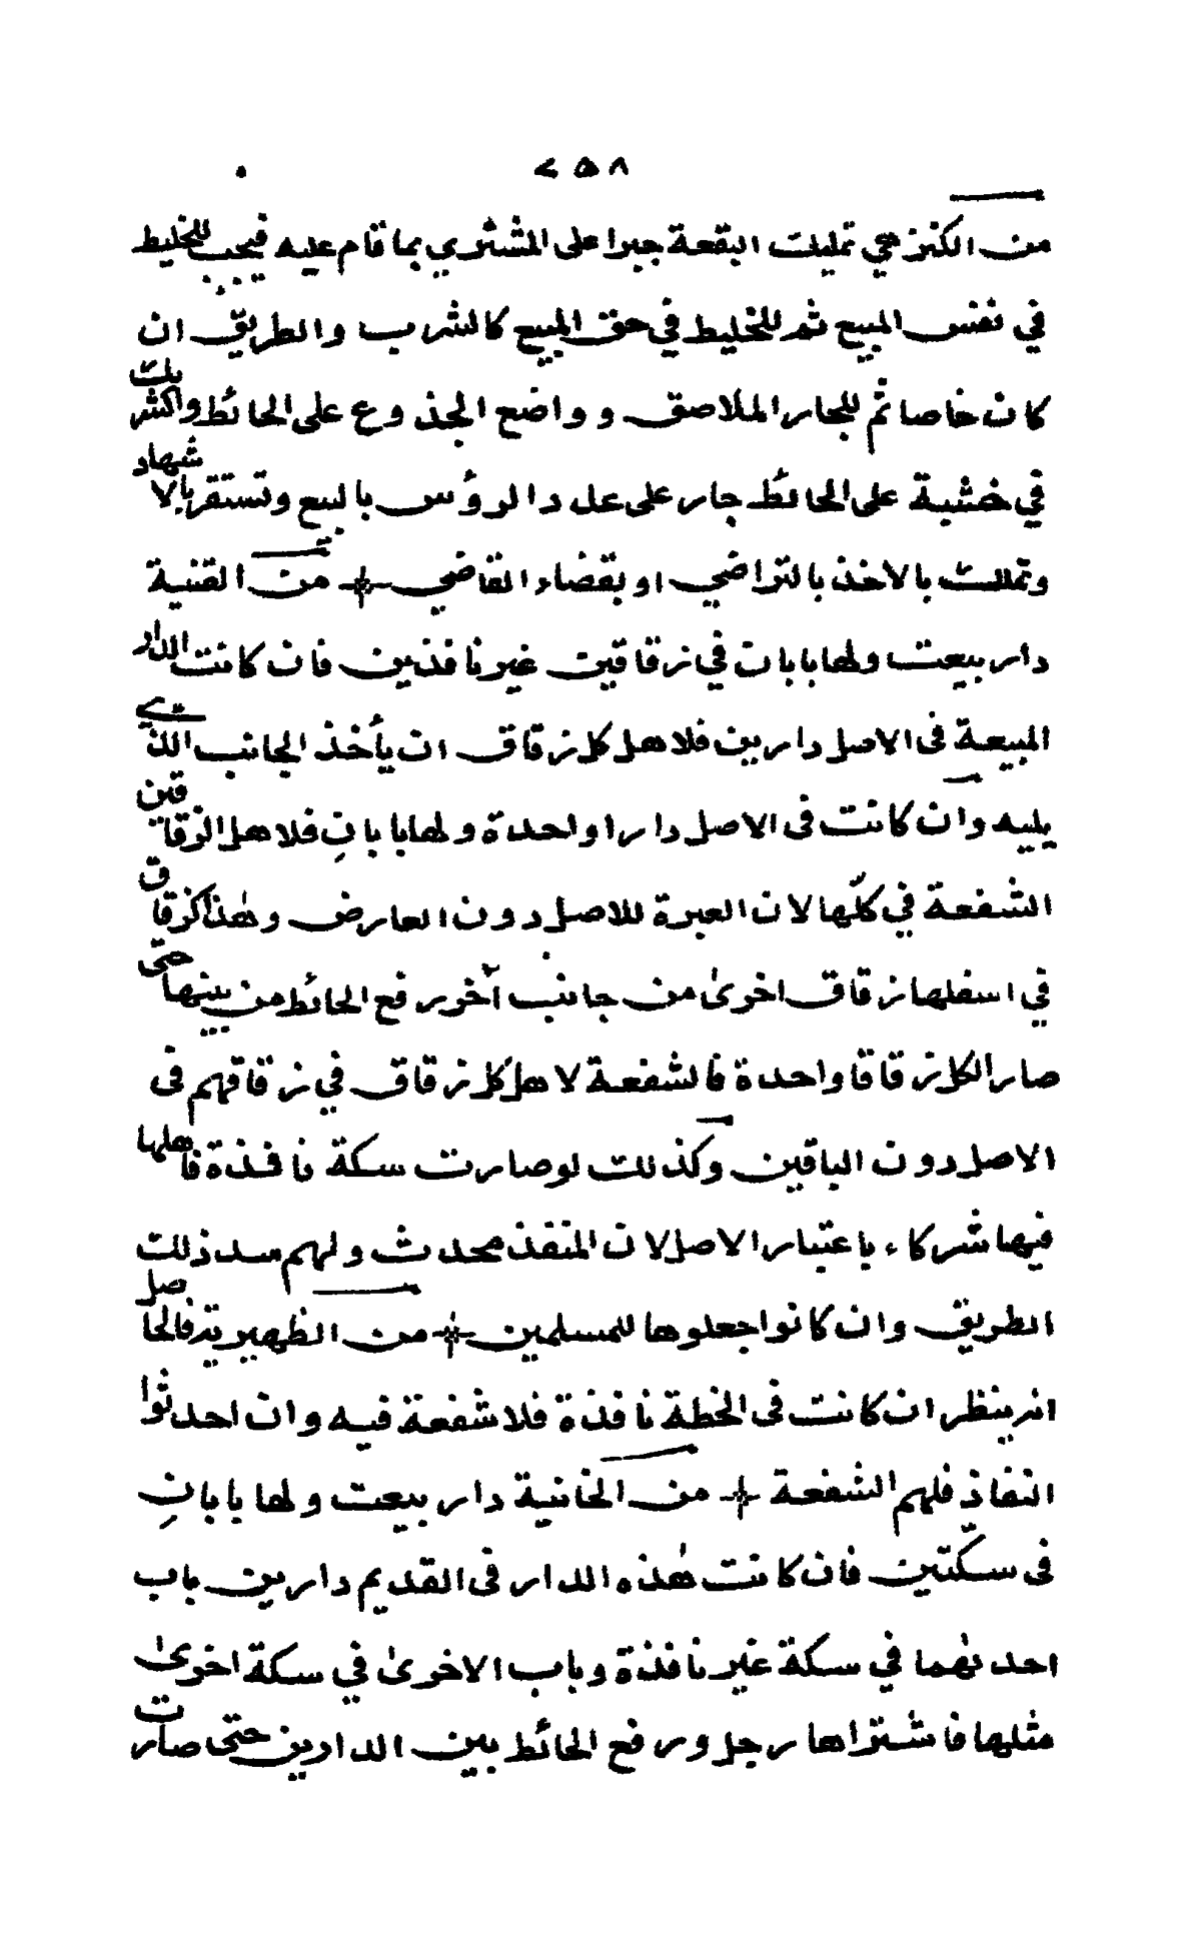 ٢٥٨
من الكنز هي تمليك البقعة جبرا على المشتري بما قام عليه فيجب للخليط
في نفس المبيع ثم للخليط في حق المبيع كالشرب والطريق ان
كان خاصا ثم للجار الملاصق وواضع الجذوع على الحائط والشريك
في خشبة على الحائط جار على عدد الرؤس بالبيع وتستقر بالاشهاد
وتملك بالاخذ بالتراضي او بقضاء القاضي من القنية
دار بيعت ولها بابان في زقاقين غير نافذين فان كانت الدار
المبيعة فى الاصل دارين فلاهل كل زقاق ان يأخذ الجانب الذي
يليه وان كانت فى الاصل دارا واحدة ولها بابانِ فلاهل الزقاقين
الشفعة في كلّها لان العبرة للاصل دون العارض وهٰذا كزقاق
في اسفلها زقاق اخرىٰ من جانب آخر رفع الحائط من بينها حتى
صار الكل زقاقا واحدة فالشفعة لاهل كل زقاق في زقاقهم فى
الاصل دون الباقين وكذلك لو صارت سكة نافذة فاهلها
فيها شركاء باعتبار الاصل لان المنفذ محدث ولهم سد ذلك
الطريق وان كانوا جعلوها للمسلمين من الظهيرية فالحاصل
انه ينظر ان كانت فى الخطة نافذة فلا شفعة فيه وان احدثوا
النفاذ فلهم الشفعة من الخانية دار بيعت ولها بابانِ
فى سكّتين فان كانت هٰذه الدار فى القديم دارين باب
احدٰهما في سكة غير نافذة وباب الاخرىٰ في سكة اخرىٰ
مثلها فاشتراها رجل ورفع الحائط بين الدارين حتى صارت